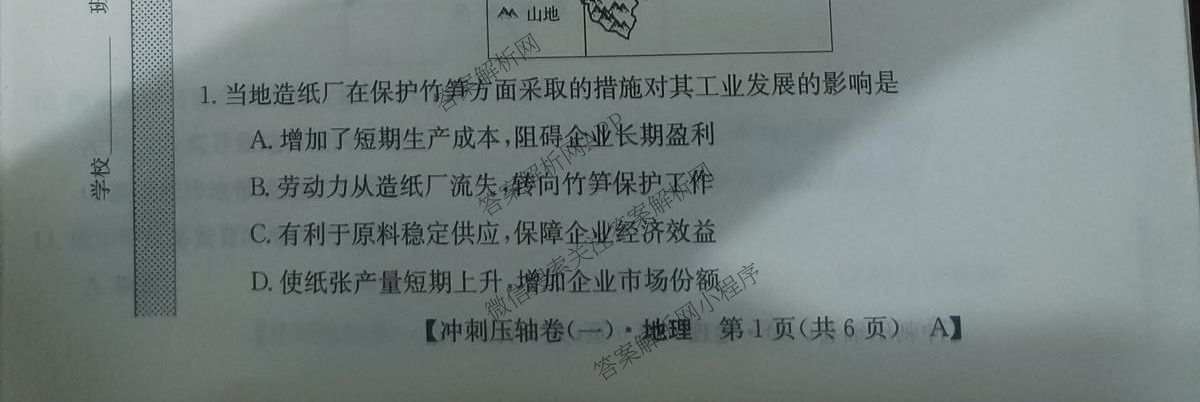 班
学校
山地
1. 当地造纸厂在保护竹笋方面采取的措施对其工业发展的影响是
A. 增加了短期生产成本,阻碍企业长期盈利
B. 劳动力从造纸厂流失,转向竹笋保护工作
C. 有利于原料稳定供应,保障企业经济效益
D. 使纸张产量短期上升,增加企业市场份额
【冲刺压轴卷(一)·地理 第1页(共6页) A】
答案解析网
答案解析网APP
微信搜索关注:答案解析网
答案解析网小程序